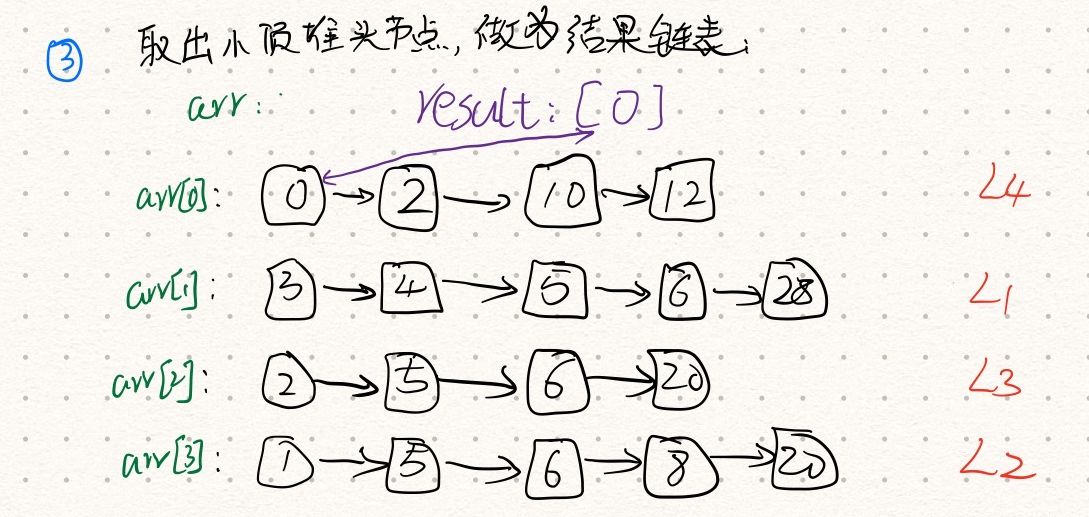 ③ 取出小顶堆头节点,做为结果链表.
arr: result:[0]
arr[0]: 0 → 2 → 10 → 12 L4
arr[1]: 3 → 4 → 5 → 6 → 28 L1
arr[2]: 2 → 5 → 6 → 20 L3
arr[3]: 1 → 5 → 6 → 8 → 20 L2